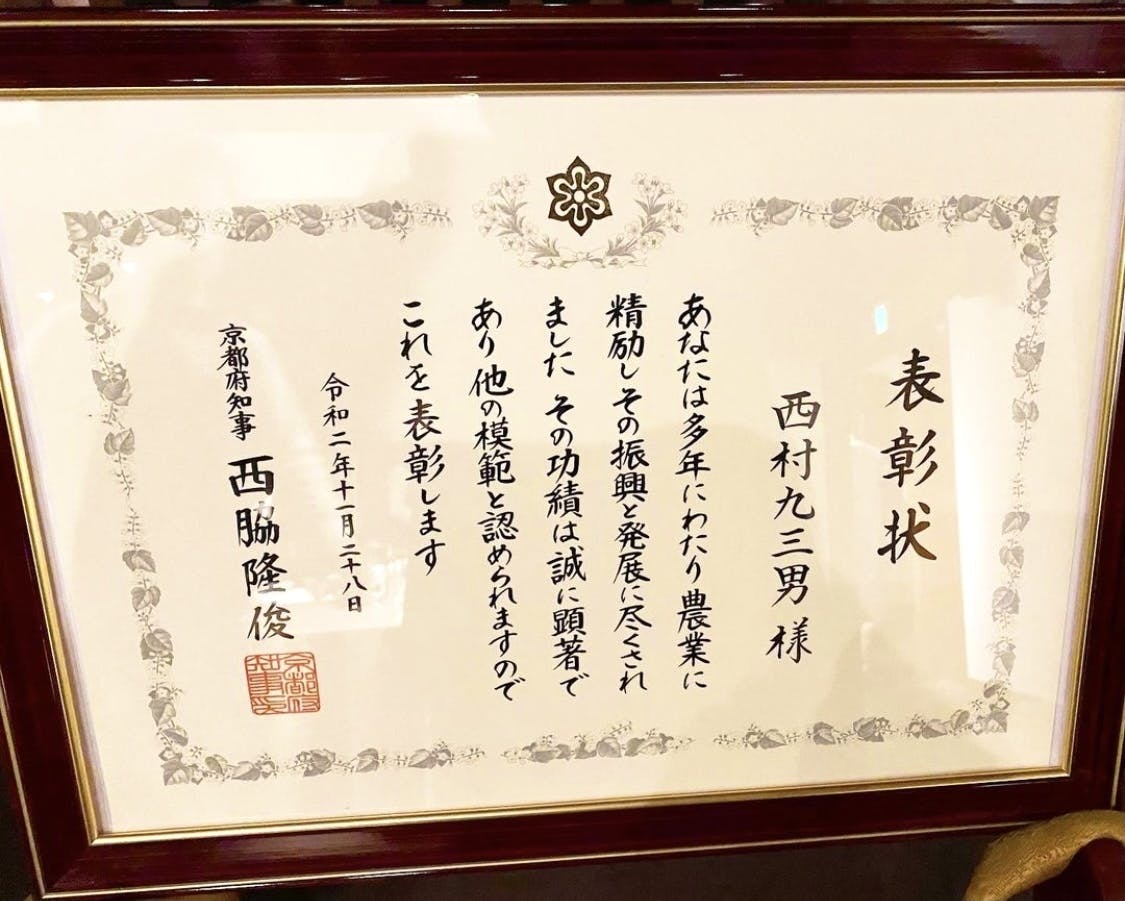 表彰状
西村九三男様
あなたは多年にわたり農業に
精励しその振興と発展に尽くされ
ました その功績は誠に顕著で
あり他の模範と認められますので
これを表彰します
令和二年十一月二十八日
京都府知事 西脇隆俊
京都府知事印